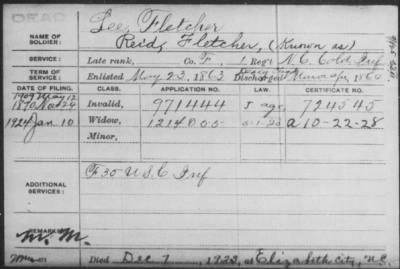 DEAD
Lee, Fletcher
NAME OF SOLDIER: Reids Fletcher, (Known as)
SERVICE: Late rank, Co. F, 1 Reg't N.C. Cold. Inf
TERM OF SERVICE: Enlisted May 23, 1863 Discharged
DATE OF FILING. CLASS. APPLICATION NO. LAW. CERTIFICATE NO.
Invalid, 971444 J age, 724545
1924 Jan. 10 Widow, 1214005 5-1-20 a 10-22-28
Minor,
ADDITIONAL SERVICES: F 30 U.S.C. Inf
REMARKS:
M. M.
Died Dec 7, 1923, at Elizabeth City, N.C.